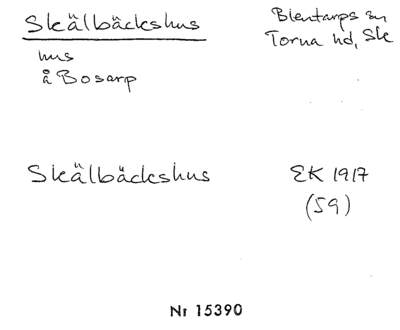 Skälbäckshus
Blentarps sn
Torna hd, Sk
hus
å Bosarp
Skälbäckshus
EK 1917
(59)
Nr 15390